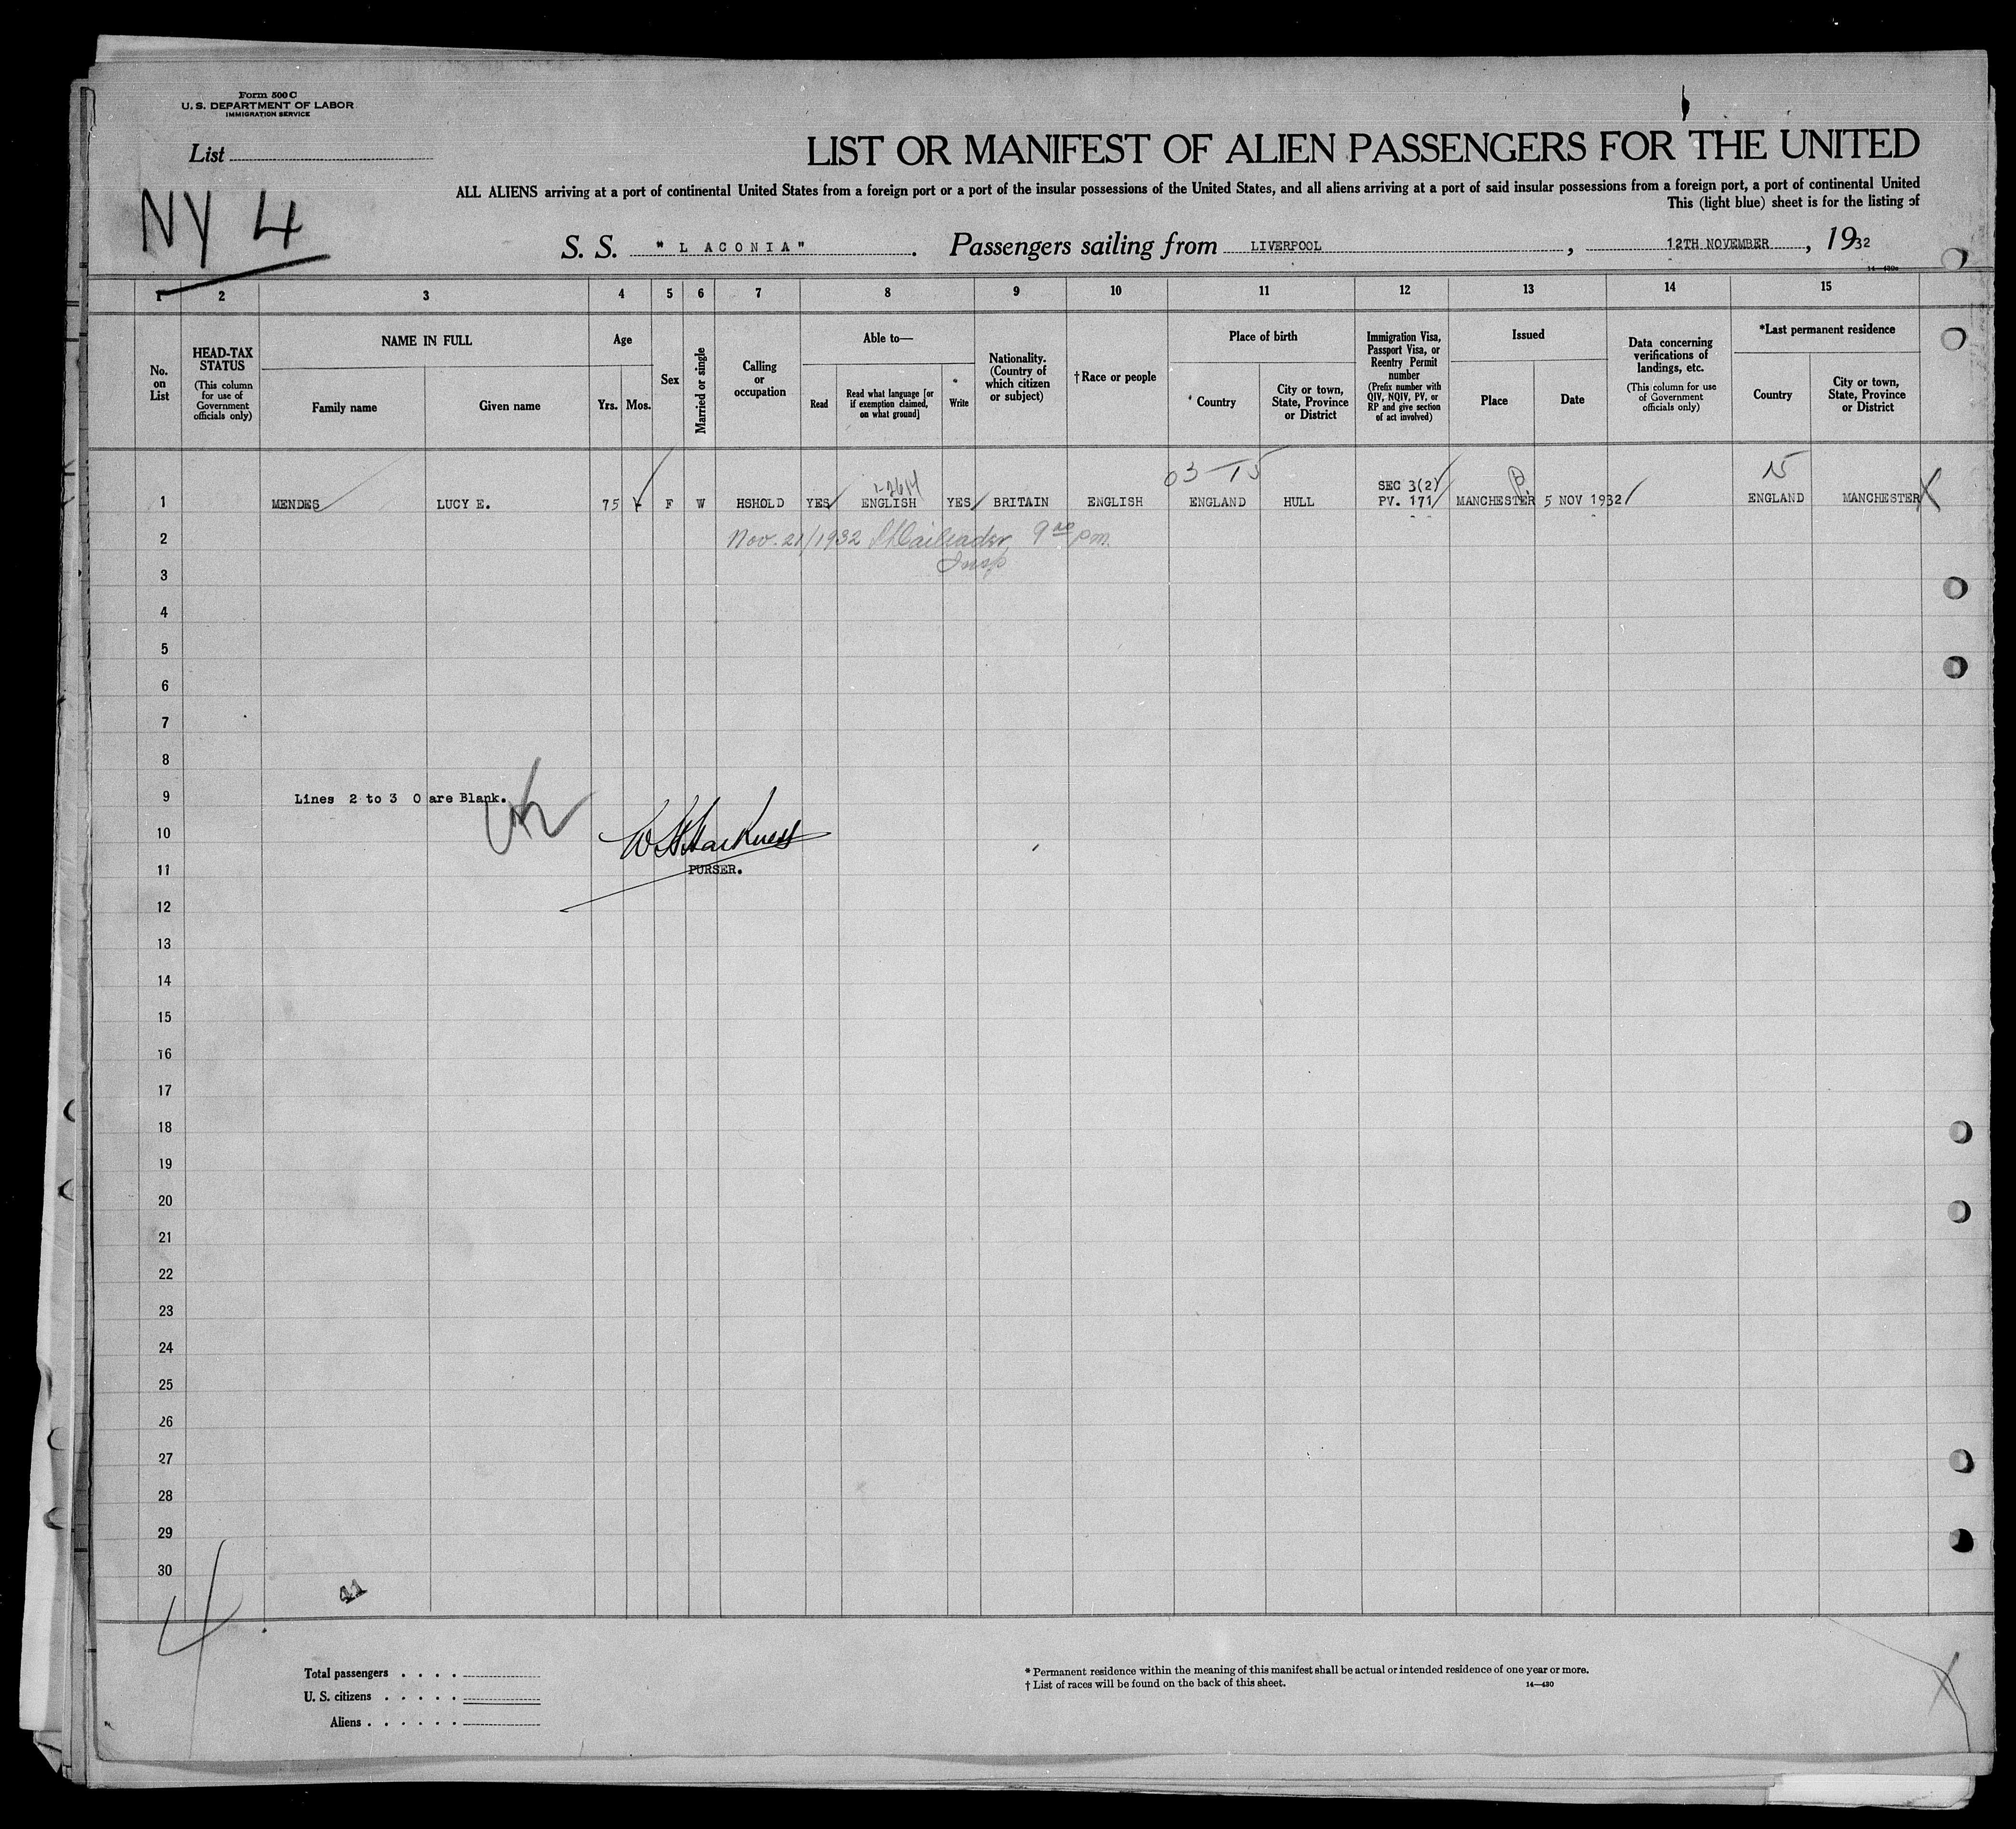 Form 500 C
U. S. DEPARTMENT OF LABOR
IMMIGRATION SERVICE
List
NY 4
LIST OR MANIFEST OF ALIEN PASSENGERS FOR THE UNITED
ALL ALIENS arriving at a port of continental United States from a foreign port or a port of the insular possessions of the United States, and all aliens arriving at a port of said insular possessions from a foreign port, a port of continental United
This (light blue) sheet is for the listing of
S. S. "L ACONIA". Passengers sailing from LIVERPOOL, 12TH NOVEMBER, 1932
1 2 3 4 5 6 7 8 9 10 11 12 13 14 15
No. on List
HEAD-TAX STATUS
(This column for use of Government officials only)
NAME IN FULL
Family name
Given name
Age
Yrs.
Mos.
Sex
Married or single
Calling or occupation
Able to—
Read
Read what language [or if exemption claimed, on what ground]
Write
Nationality. (Country of which citizen or subject)
†Race or people
Place of birth
Country
City or town, State, Province or District
Immigration Visa, Passport Visa, or Reentry Permit number
(Prefix number with QIV, NQIV, PV, or RP and give section of act involved)
Issued
Place
Date
Data concerning verifications of landings, etc.
(This column for use of Government officials only)
*Last permanent residence
Country
City or town, State, Province or District
03 15
SEC 3(2)
15
1 MENDES LUCY E. 75 F W HSHOLD YES ENGLISH YES BRITAIN ENGLISH ENGLAND HULL PV. 171 MANCHESTER 5 NOV 1932 ENGLAND MANCHESTER
2
Nov. 21/1932 9 00 pm.
Insp
3
4
5
6
7
8
9 Lines 2 to 3 0 are Blank.
10 W Harkness
11 PURSER.
12
13
14
15
16
17
18
19
20
21
22
23
24
25
26
27
28
29
30
4
Total passengers . . . .
U. S. citizens . . . . .
Aliens . . . . . .
* Permanent residence within the meaning of this manifest shall be actual or intended residence of one year or more.
† List of races will be found on the back of this sheet.
14—430